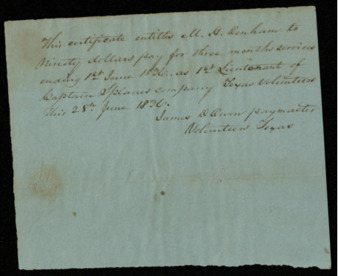 This certificate entitles M. H. Denham to
Ninety dollars pay for three months services
ending 1st June 1836. as 1st Lieutenant of
Captain company Texas Volunteers
this 28th June 1836.
James D Owen paymaster
Volunteers Texas